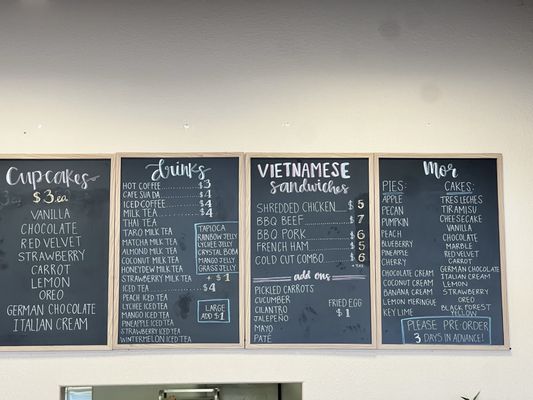 CUPCAKES
$3.ea
VANILLA
CHOCOLATE
RED VELVET
STRAWBERRY
CARROT
LEMON
OREO
GERMAN CHOCOLATE
ITALIAN CREAM
drinks
HOT COFFEE $3
CAFE SUA DA $4
ICED COFFEE $4
MILK TEA $4
THAI TEA
TARO MILK TEA
MATCHA MILK TEA
ALMOND MILK TEA
COCONUT MILK TEA
HONEYDEW MILK TEA
STRAWBERRY MILK TEA
ICED TEA $4
PEACH ICED TEA
LYCHEE ICED TEA
MANGO ICED TEA
PINEAPPLE ICED TEA
STRAWBERRY ICED TEA
WINTERMELON ICED TEA
TAPIOCA
RAINBOW JELLY
LYCHEE JELLY
CRYSTAL BOBA
MANGO JELLY
GRASS JELLY
+ $1
LARGE
ADD $1
VIETNAMESE
sandwiches
SHREDDED CHICKEN $5
BBQ BEEF $7
BBQ PORK $6
FRENCH HAM $5
COLD CUT COMBO $6
add ons
PICKLED CARROTS
CUCUMBER
CILANTRO
JALAPEÑO
MAYO
PATÉ
FRIED EGG
$1
MOR
PIES:
APPLE
PECAN
PUMPKIN
PEACH
BLUEBERRY
PINEAPPLE
CHERRY
CHOCOLATE CREAM
COCONUT CREAM
BANANA CREAM
LEMON MERINGUE
KEY LIME
CAKES:
TRES LECHES
TIRAMISU
CHEESECAKE
VANILLA
CHOCOLATE
MARBLE
RED VELVET
CARROT
GERMAN CHOCOLATE
ITALIAN CREAM
LEMON
STRAWBERRY
OREO
BLACK FOREST
YELLOW
PLEASE PRE-ORDER
3 DAYS IN ADVANCE!